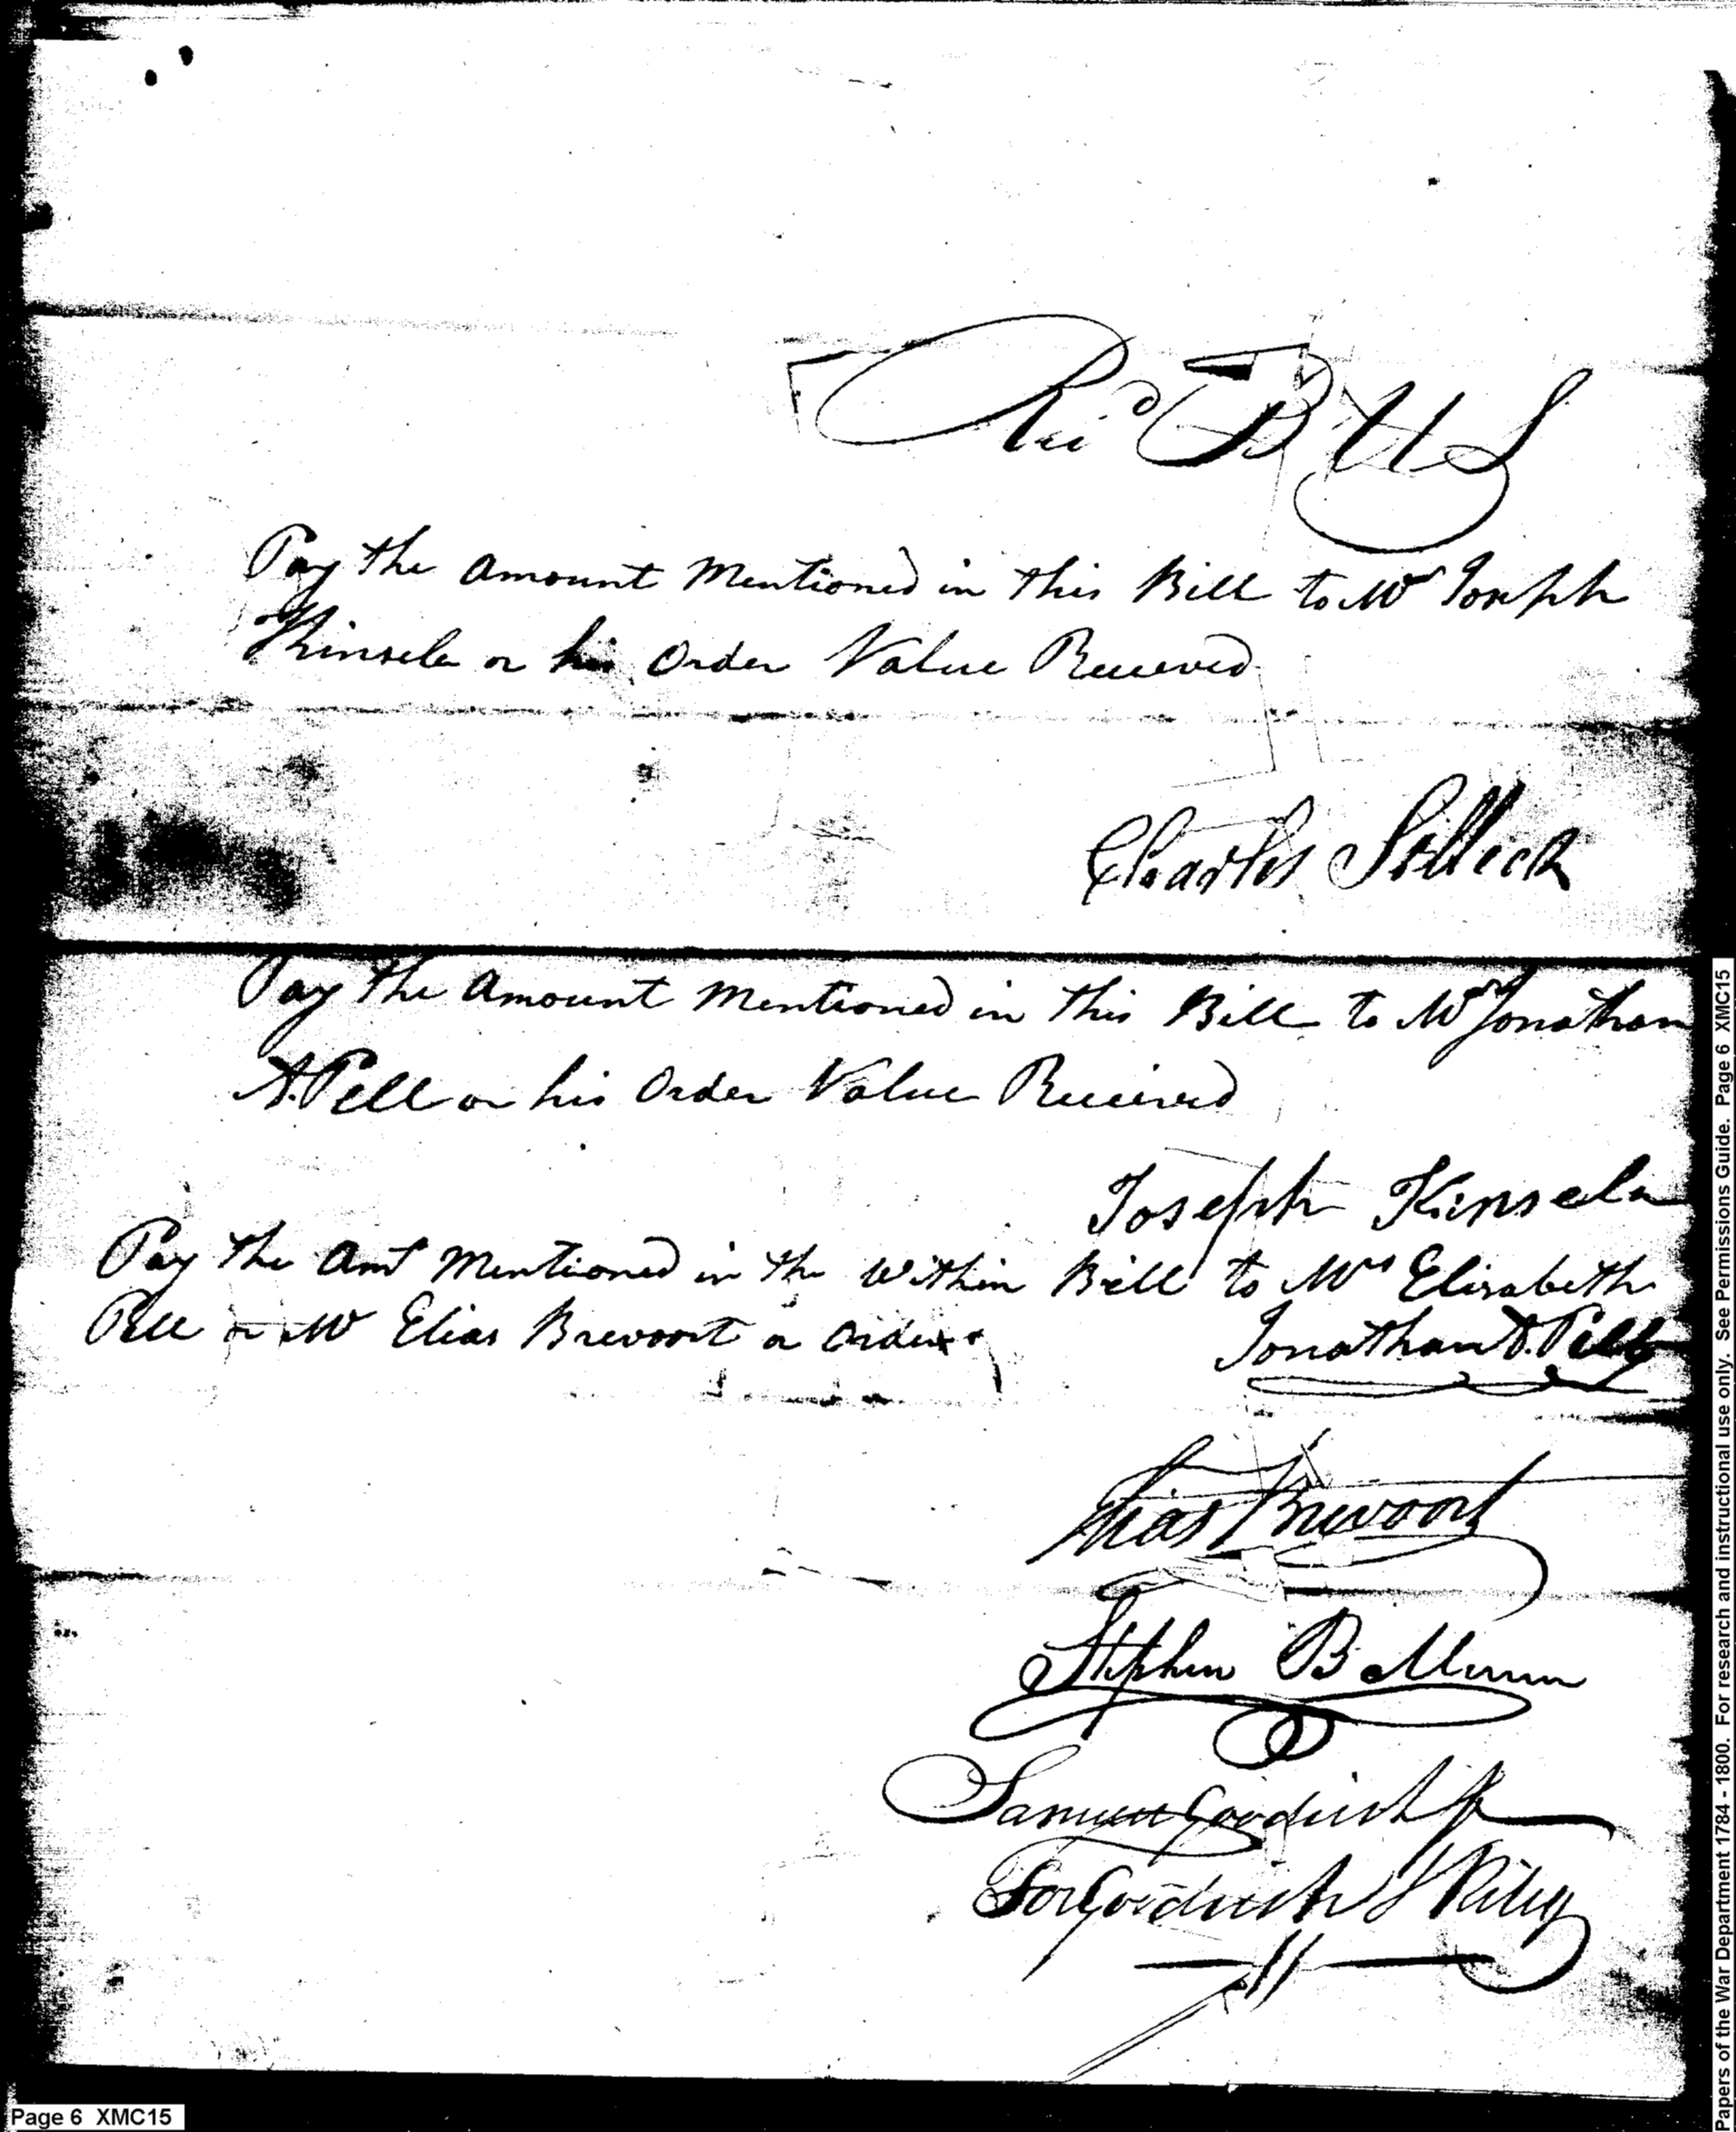 Rec.d B U S
Pay the Amount Mentioned in this Bill to Mr Joseph
Kinsela or his Order Value Received
Charles Selleck
Pay the Amount Mentioned in this Bill to Mr Jonathan
A. Pell or his Order Value Received
Joseph Kinsela
Pay the Amt Mentioned in the Within Bill to Mrs Elisabeth
Pell or Mr Elias Brevoort or Order
Jonathan A. Pell
Elias Brevoort
Stephen B
Samuel Goodrich Jr
For Goodrich & Riley
Page 6 XMC15
Papers of the War Department 1784 - 1800. For research and instructional use only. See Permissions Guide. Page 6 XMC15